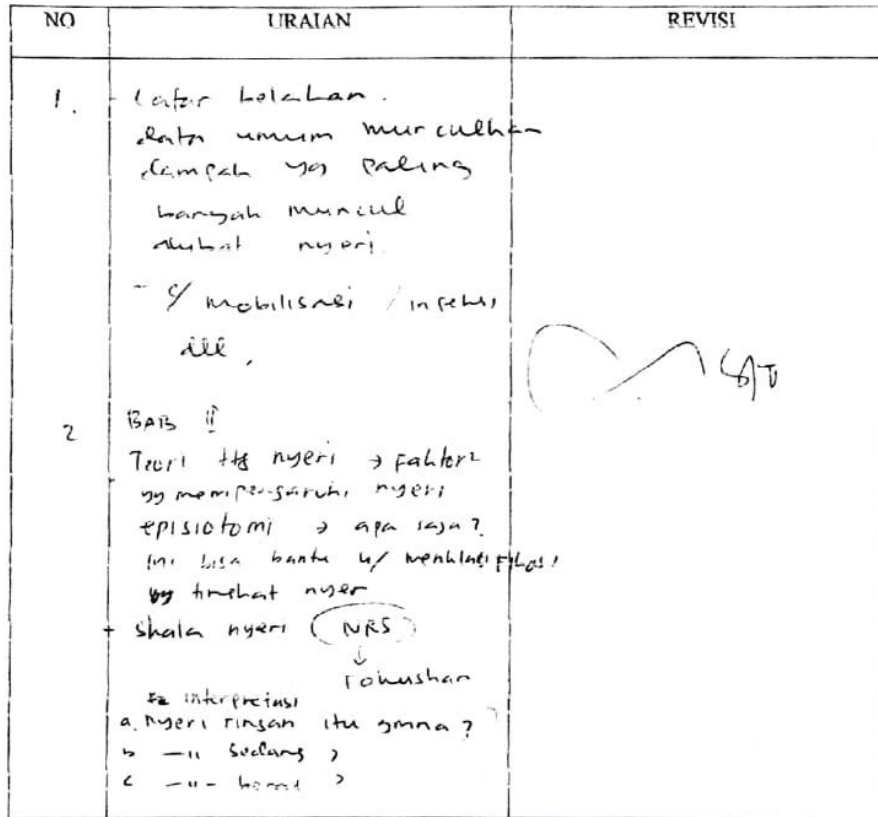 NO URAIAN REVISI
1. - Latar belakan.
data umum munculkan
dampak yg paling
banyak muncul
akibat nyeri.
- mobilisasi / infeksi
dll,
2 BAB II
Teori ttg nyeri → faktor2
yg mempengaruhi nyeri
episiotomi → apa saja?
ini bisa bantu u/ mengklasifikasi
tingkat nyer
+ skala nyeri (NRS)
↓
Fokuskan
interpretasi
a. nyeri ringan itu gmna?
b —"— sedang ?
c —"— berat ?